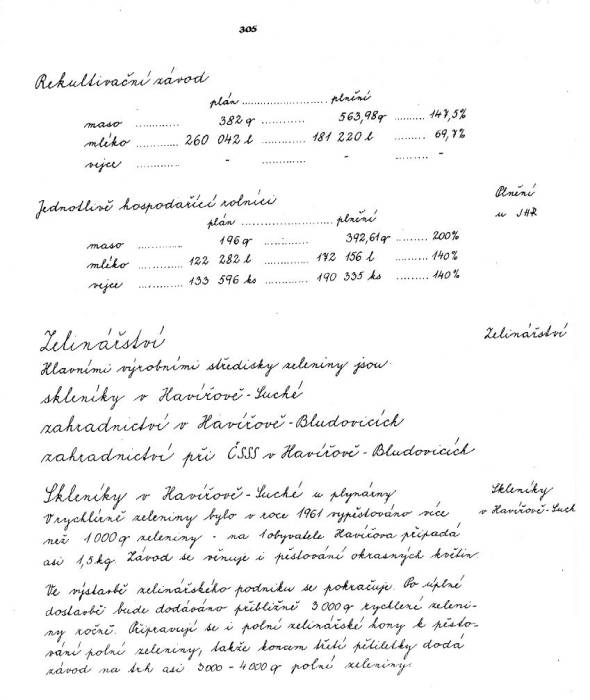 305
Rekultivační závod
plán ........................ plnění
maso ............ 382 q ............ 563,98 q ......... 147,5%
mléko ............ 260 042 l ............ 181 220 l ......... 69,7%
vejce ............ - ............ - ......... -
Jednotlivě hospodařící rolníci
Plnění
u JHR
plán .................. plnění
maso ............ 196 q ............ 392,61 q ......... 200%
mléko ............ 122 282 l ............ 172 156 l ......... 140%
vejce ............ 133 596 ks ............ 190 335 ks ......... 140%
Zelinářství
Zelinářství
Hlavními výrobními středisky zeleniny jsou
skleníky v Havířově-Suché
zahradnictví v Havířově-Bludovicích
zahradnictví při ČSSS v Havířově-Bludovicích
Skleníky v Havířově-Suché u plynárny
Skleníky
v Havířově-Such
V rychlírně zeleniny bylo v roce 1961 vypěstováno více
než 1 000 q zeleniny - na 1 obyvatele Havířova připadá
asi 1,5 kg. Závod se věnuje i pěstování okrasných květin.
Ve výstavbě zelinářského podniku se pokračuje. Po úplné
dostavbě bude dodáváno přibližně 3 000 q rychlené zeleni-
ny ročně. Připravují se i polní zelinářské hony k pěsto-
vání polní zeleniny, takže koncem třetí pětiletky dodá
závod na trh asi 3000 - 4000 q polní zeleniny.